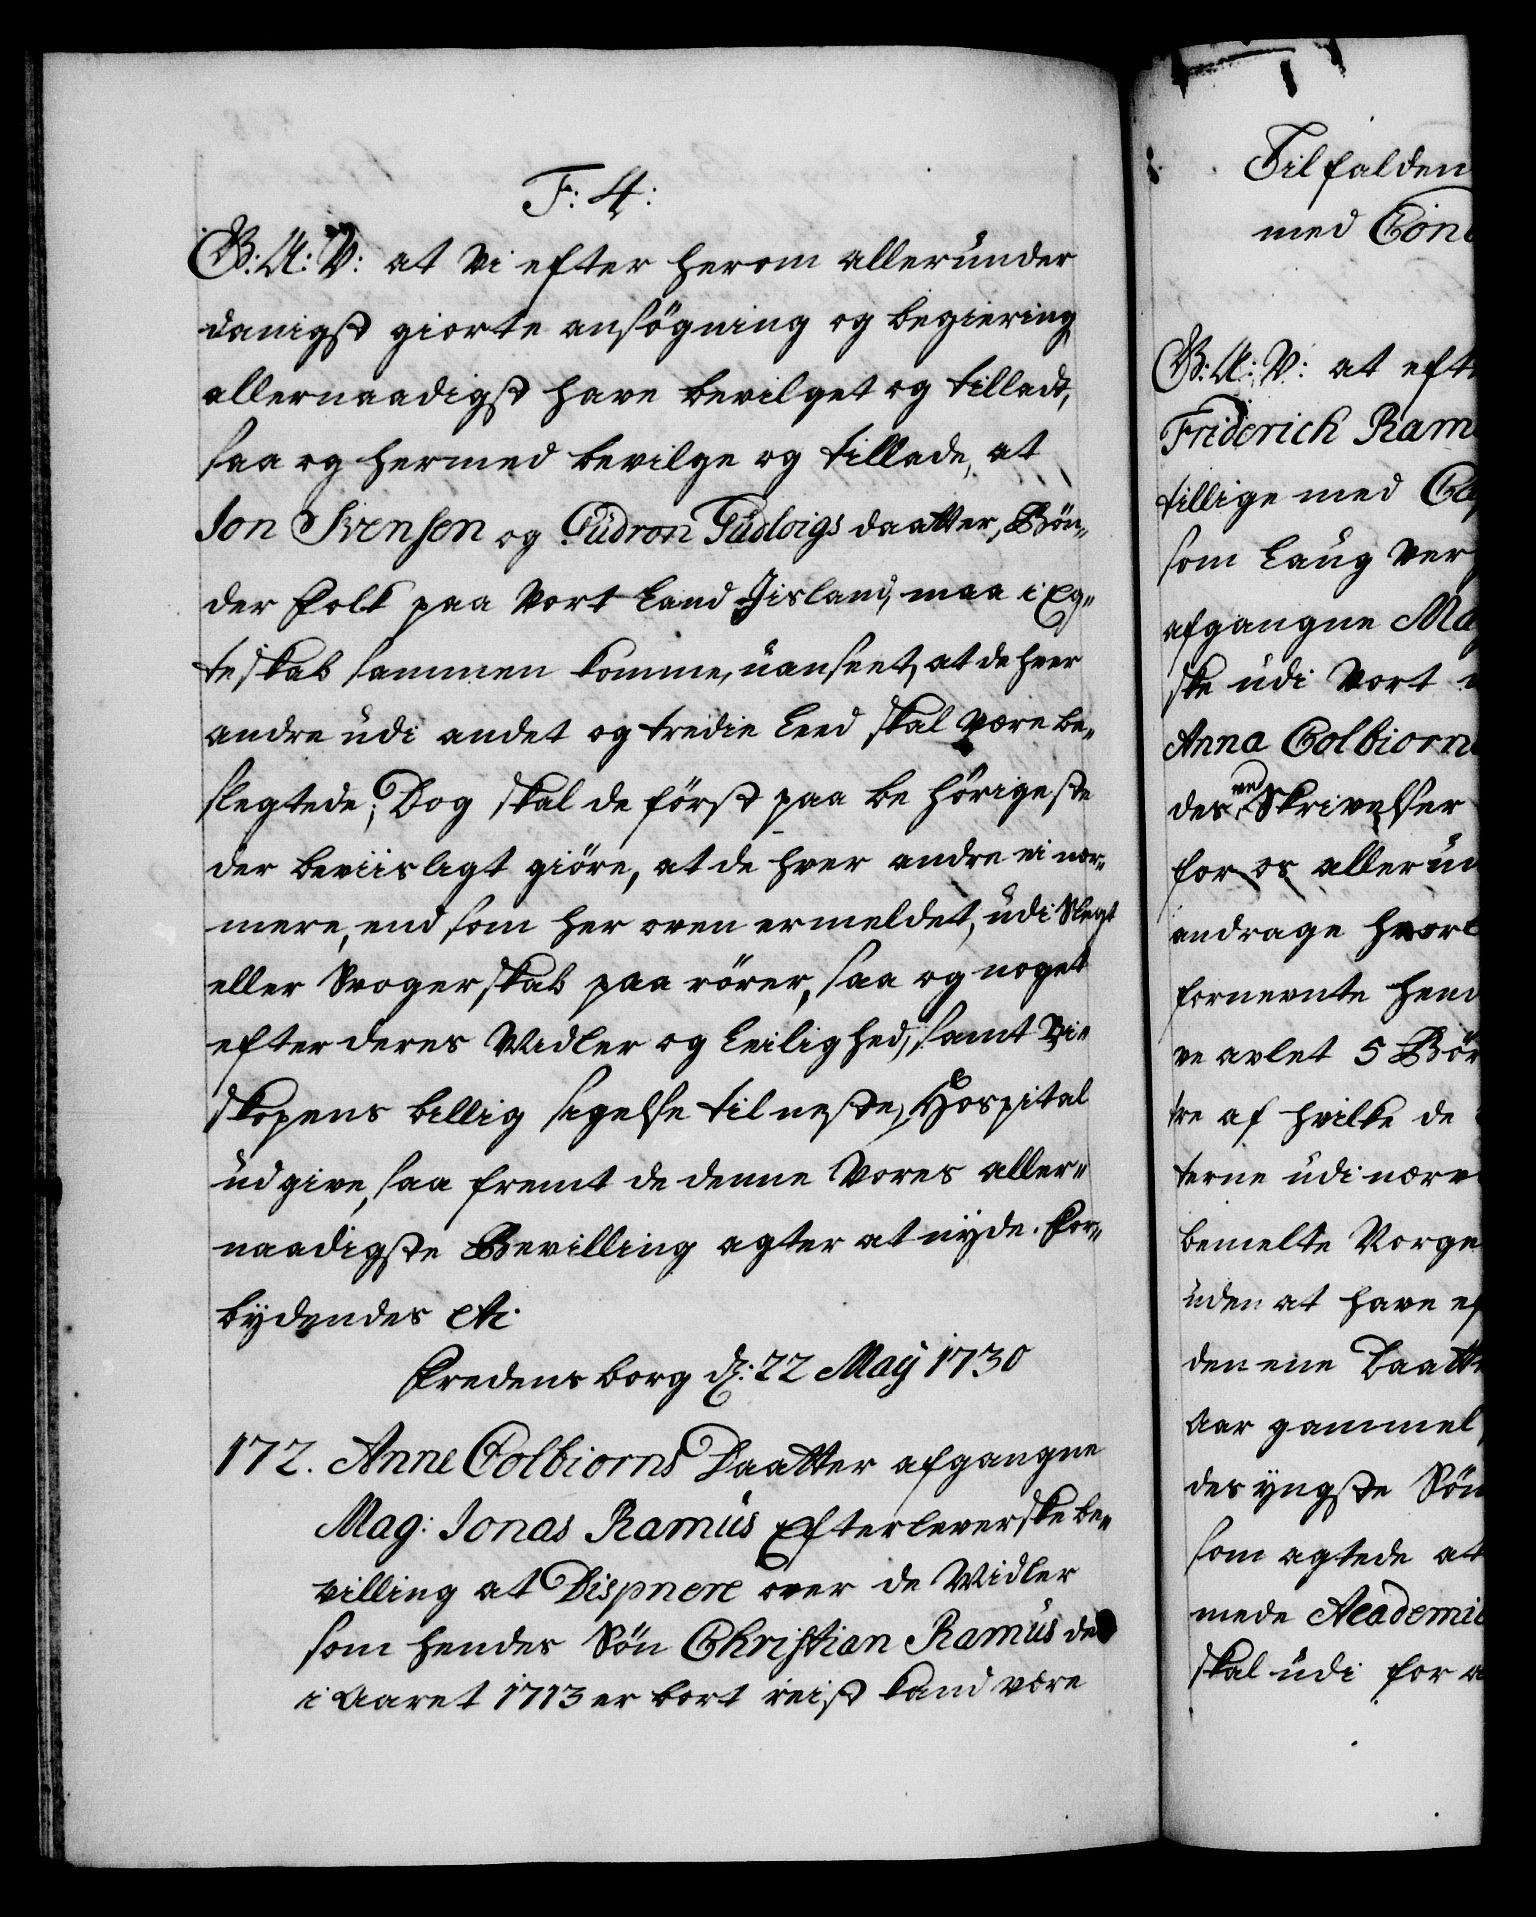 F: 4:
G: A: V: at Vi efter herom allerunder
danigst giorte ansøgning og begiering
allernaadigst have bevilget og tilladt,
saa og hermed bevilge og tillade, at
Jon Svensen og Gudron Gudloigs daatter, Bøn-
der folk paa Vort Land Jisland, maa i Eg-
teskab sammen komme, uanseet, at de hver
andre udi andet og tredie Leed skal være be-
slegtede; Dog skal de først paa behørigste
der beviisligt giøre, at de hver andre ei nær-
mere, end som her oven ermeldet, udi Slegt
eller Svogerskab paarører, saa og noget
efter deres Midler og Leilighed, samt Bi-
skopens billig sigelse til neste Hospital
udgive, saa fremt de denne Vores aller-
naadigste Bevilling agter at nyde. For-
bydendes etc.
Fredensborg d: 22 May 1730
172. Anne Colbiorns Daatter afgangne
Mag: Jonas Ramus Efterleverske be-
villing at Dispnere over de Midler
som hendes Søn Christian Ramus der
i Aaret 1713 er bort reist kand være
Tilfalden
med
G: A: V: at
Friderich
tillige med
som Laug
afgangne
ske udi Vort
Anna
des ved Skrivelser
for os
andrage
fornevnte
ve avlet 5
tre af hvilke de
terne udi
bemelte
uden at have
den ene
Aar gammel,
des yngste Søn
som agtede at
mede
skal udi for